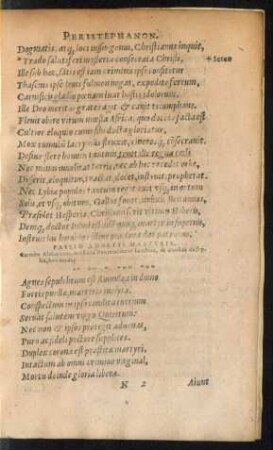 PERISTEPHANON.
Dogmatis: atq; loci insing genus, Christianus inquit,
Trado salutiferi mysteria consecrata Christi,
Ille sub hæc, satis est iam criminis ipse confitetur
Thascius ipse Iouis fulmen negat, expedite ferrum,
Carnifices gladio pœnam luat hostis idolorum.
Ille Deo meritas grates agit & canit triumphans.
Fleuit abire virum mæsta Africa, quo docente facta est
Cultior eloquio cuius sibi docta gloriatur,
Mox tumulum lacrymis struxit, cineresq;
Desine flere bonum tantum, tenet ille regna cœli
Nec minus inuolitat terris, nec ab hoc recedit orbe,
Disserit, eloquitur, tractat, docet, instruit, prophetat.
Nec Lybiæ populos tantum regit, exit vsq; in ortum
Solis, et vsq; obitum, Gallos fouet, imbuit Britannos,
Præsidet Hesperiæ, Christum serit vltimis Hiberis,
Deniq; doctor humi est idem quoq; martyr in supernis,
Instruit hic homines, illinc pia dona dat patronus.
PASSIO AGNETIS MARTYRIS.
Agnes sepulchrum est Romulea in domo
Fortis puellæ, martyris inclytæ.
Conspectu in ipso condita turrium
Seruat salutem virgo Quiritum:
Nec non & ipsos protegit aduenas,
Puro ac fideli pectore supplices.
Duplex corona est præstita martyri,
Intactum ab omni crimine virginal,
Mortis deinde gloria liberæ.
N 2 Aiunt